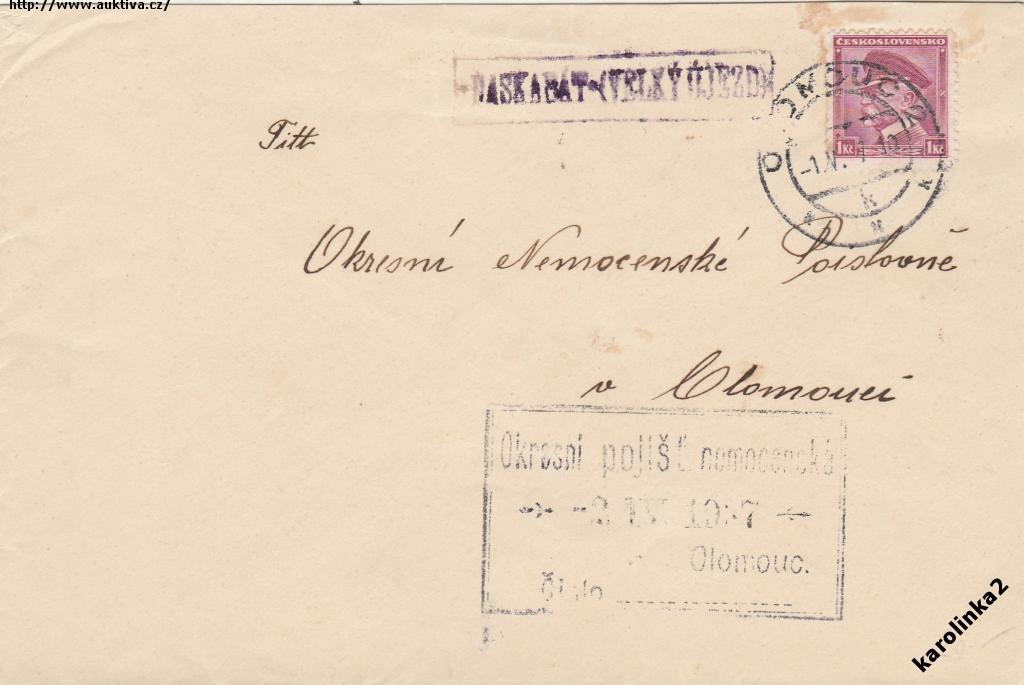 http://www.auktiva.cz/
DASKABÁT-(VELKÝ ÚJEZD)
ČESKOSLOVENSKO
1Kč 1Kč
OLOMOUC 2
Titt
Okresní Nemocenské Poislovně
v Olomouci
Okresní pojišť. nemocenská
-2. IX. 1937
Olomouc.
Číslo
karolinka2